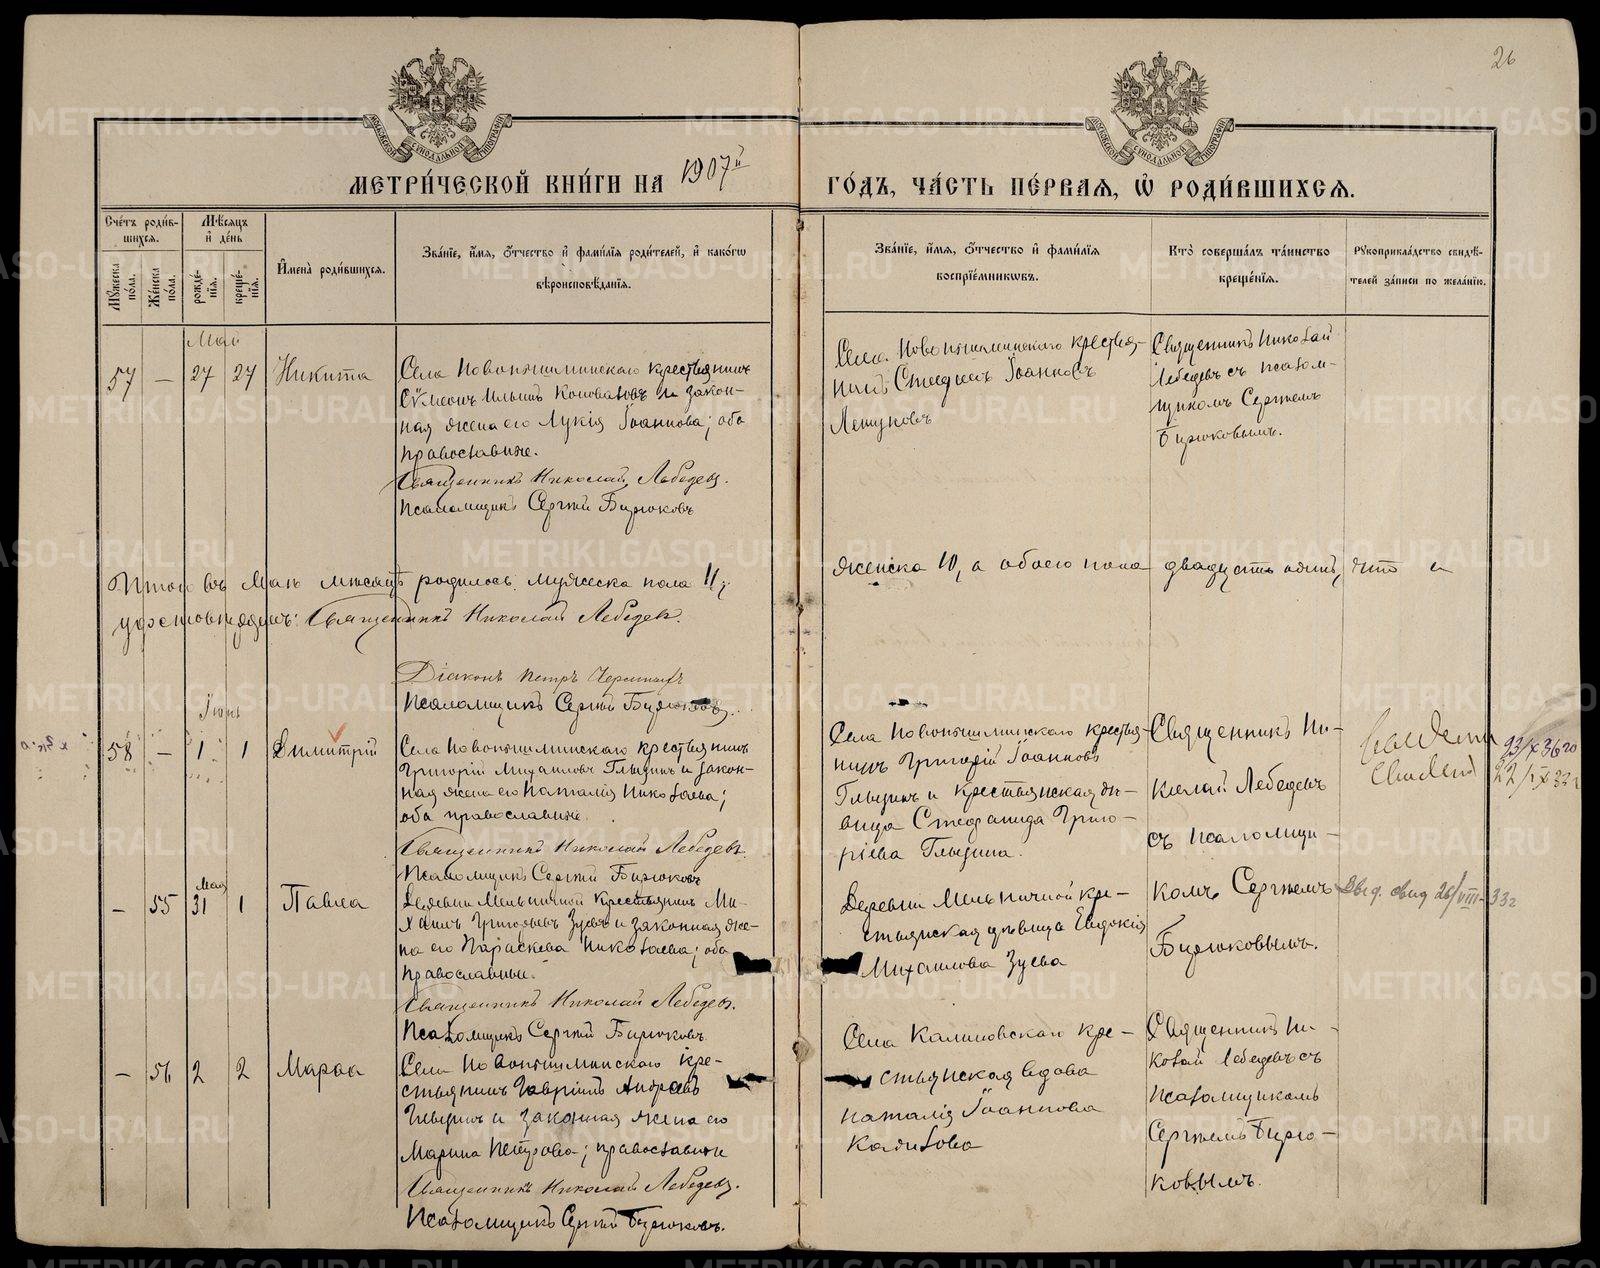 26
МЕТРИ́ЧЕСКОЙ КНИ́ГИ НА 1907й ГО́ДЪ, ЧА́СТЬ ПЕ́РВАЯ, Ѡ РОДИ́ВШИХСЯ.
Сче́тъ роди́в-
шихся.
Му́жеска по́ла.
Же́нска по́ла.
Мѣ́сяцъ
и҆ де́нь
рожде́-
нїя.
креще́-
нїя.
И҆мена̀ роди́вшихся.
Зва́нїе, и҆́мя, ѻ҆́тчество и҆ фами́лїя роди́телей, и҆ како́гѡ
вѣроисповѣ́данїя.
Зва́нїе, и҆́мя, ѻ҆́тчество и҆ фами́лїя
воспрїе́мникѡвъ.
Кто̀ соверша́лъ та́инство
креще́нїя.
Рꙋкоприкла́дство свидѣ́-
телей за́писи по жела́нїю.
Май
57 — 27 27 Никита
Села Новопышминскаго крестьянинъ
Сѵмеонъ Ильинъ Коноваловъ и закон-
ная жена его Лукія Іоаннова; оба
православные.
Священникъ Николай Лебедевъ.
Псаломщикъ Сергій Бирюковъ
Села Новопышминскаго крестья-
нинъ Стефанъ Іоанновъ
Священникъ Николай
Лебедевъ съ псалом-
щикомъ Сергіемъ
Бирюковымъ.
Итого въ Маѣ мѣсяцѣ родилось мужеска пола 11, женска 10, а обоего пола двадцать одинъ, что и
удостовѣряемъ: Священникъ Николай Лебедевъ.
Діаконъ Петръ
Псаломщикъ Сергій Бирюковъ.
Іюнь
58 — 1 1 Димитрій
Села Новопышминскаго крестьянинъ
Григорій Михаиловъ Глызинъ и закон-
ная жена его Наталія Николаева;
оба православные.
Священникъ Николай Лебедевъ.
Псаломщикъ Сергій Бирюковъ
Села Новопышминскаго крестья-
нинъ Григорій Іоанновъ
Глызинъ и крестьянская дѣ-
вица Стефанида Григо-
рієва Глызина.
Священникъ Ни-
колай Лебедевъ
съ псаломщи-
комъ Сергіемъ
Бирюковымъ.
23/X 36 го
22/IX 33 г
Май
— 55 31 1 Павла
Деревни Мельничной крестьянинъ Ми-
хаилъ Григорьевъ Зуевъ и законная же-
на его Параскева Николаева; оба
православные.
Священникъ Николай Лебедевъ.
Псаломщикъ Сергій Бирюковъ.
Деревни Мельничной кре-
стьянская дѣвица Евдокія
Михаилова Зуева
Выд. свид 26/VIII-33 г
— 56 2 2 Марѳа
Села Новопышминскаго кре-
стьянинъ Гавріилъ Андреевъ
Глызинъ и законная жена его
Марина Петрова; православные
Священникъ Николай Лебедевъ.
Псаломщикъ Сергій Бирюковъ.
Села Калиновскаго кре-
стьянская вдова
Наталія Іоаннова
Священникъ Ни-
колай Лебедевъ съ
псаломщикомъ
Сергіемъ Бирю-
ковымъ.
METRIKI.GASO-URAL.RU